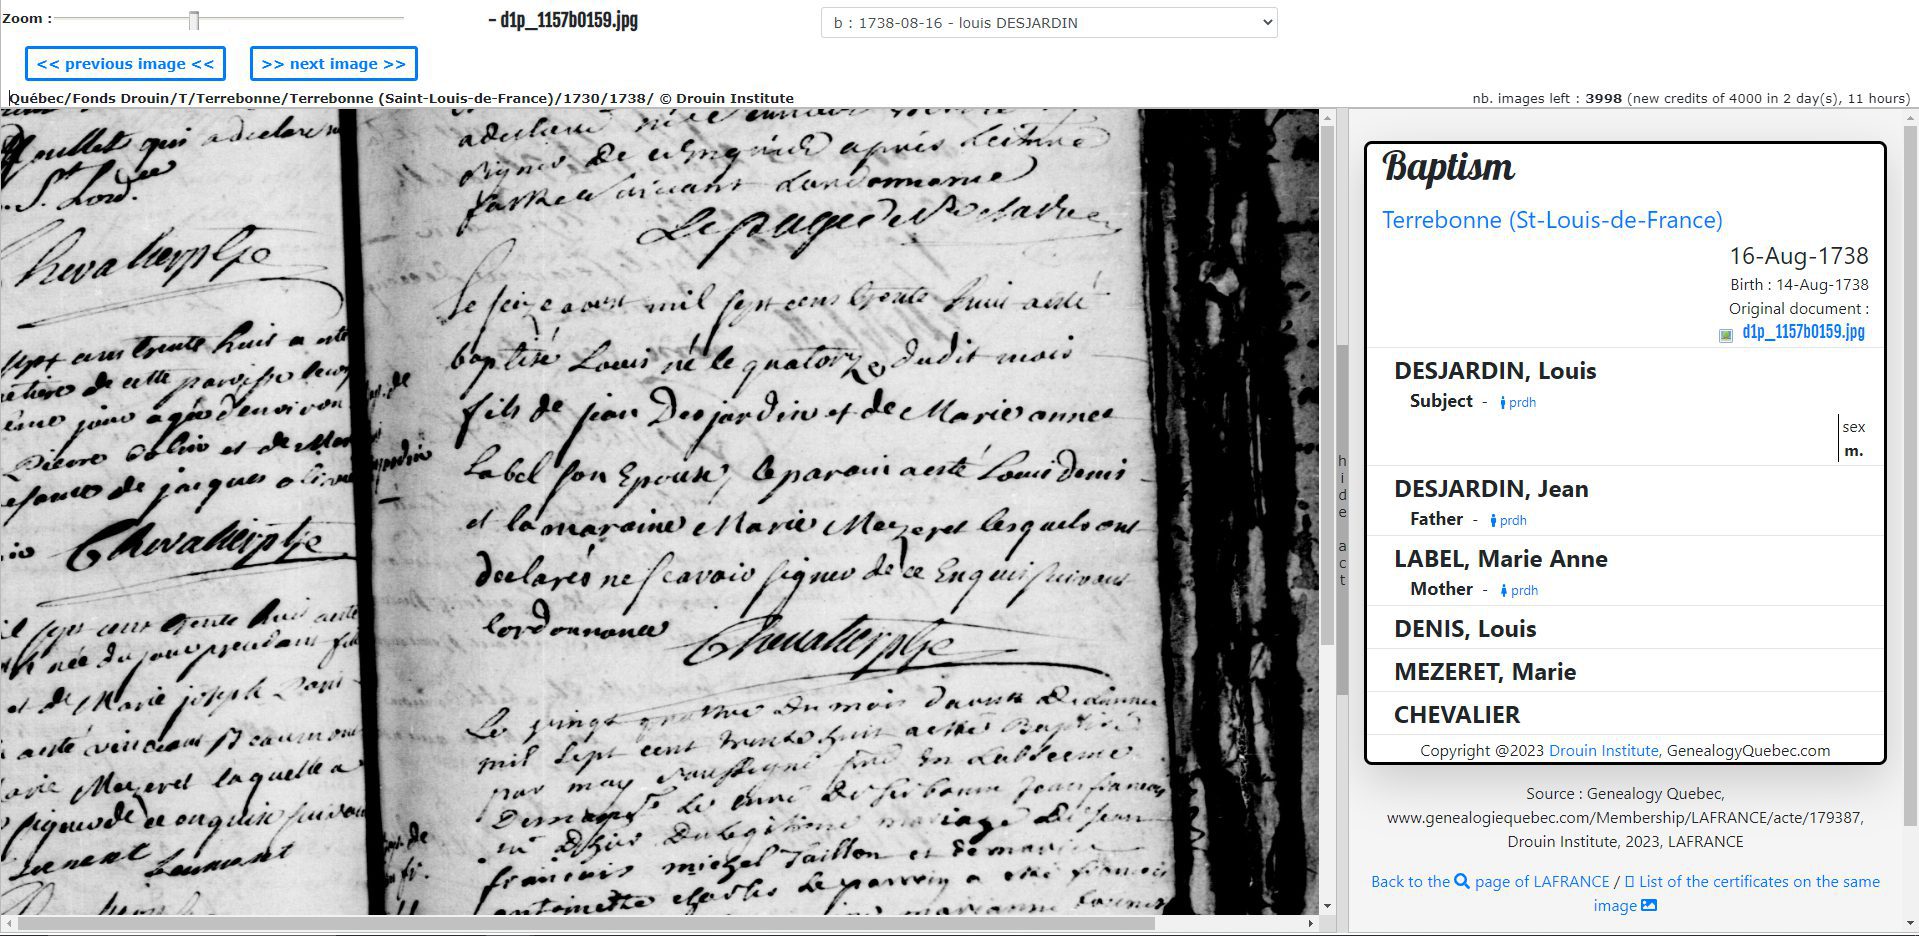 Zoom :
- d1p_1157b0159.jpg
b : 1738-08-16 - louis DESJARDIN
<< previous image <<
>> next image >>
Québec/Fonds Drouin/T/Terrebonne/Terrebonne (Saint-Louis-de-France)/1730/1738/ © Drouin Institute
nb. images left : 3998 (new credits of 4000 in 2 day(s), 11 hours)
qui a declare
St. Lord.
Chevalier ptre
sept cens trente huit a esté
de cette paroisse
jour agée d'environ
Pierre et de
de jacques
Chevalier ptre
sept cens trente huit a esté
née du jour
et de Marie joseph
a esté
Mezeret laquelle a
signer de ce enquise suivant
declaré
signer de ce enquis après lecture
suivant Lordonnance
Lepage de Ste Claire
Le seize aoust mil sept cens trente huit a esté
baptisé Louis né le quatorze dudit mois
fils de jean Desjardin et de Marie anne
Label son Epouse, le parain a esté Louis denis
et la maraine Marie Mezeret lesquels ont
declarés ne scavoir signer de ce Enquis suivant
lordonnance Chevalier ptre
Le vingt quatre du mois daoust de Lannee
mil sept cent trente huit a esté Baptisé
par moy soussigné
le curé de Terbonne Jean francois
du legitime mariage de Jean
francois michel Taillon et de marie
antoinette charles Le parrein a esté francois
marianne
hide act
Baptism
Terrebonne (St-Louis-de-France)
16-Aug-1738
Birth : 14-Aug-1738
Original document :
d1p_1157b0159.jpg
DESJARDIN, Louis
Subject - prdh
sex
m.
DESJARDIN, Jean
Father - prdh
LABEL, Marie Anne
Mother - prdh
DENIS, Louis
MEZERET, Marie
CHEVALIER
Copyright @2023 Drouin Institute, GenealogyQuebec.com
Source : Genealogy Quebec,
www.genealogiequebec.com/Membership/LAFRANCE/acte/179387,
Drouin Institute, 2023, LAFRANCE
Back to the page of LAFRANCE / List of the certificates on the same
image